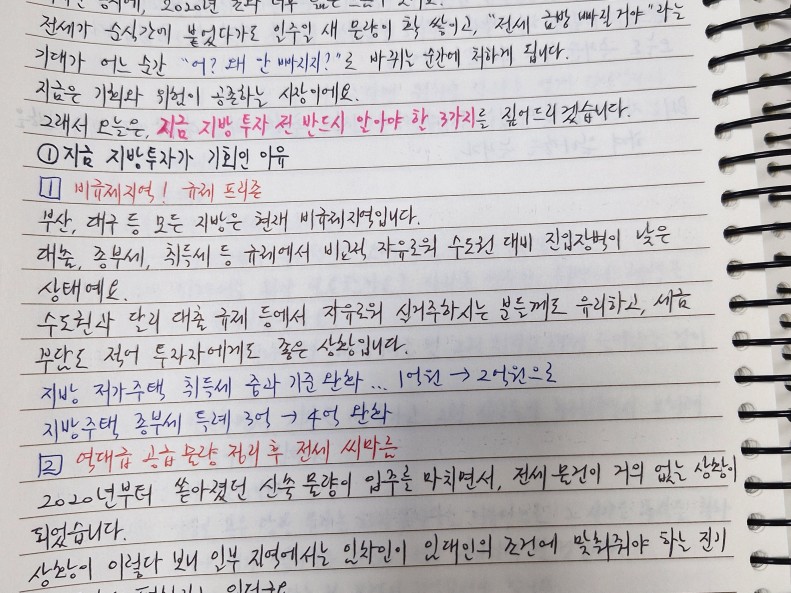 전세가 순식간에 붙었다가도 일주일 새 물량이 확 쌓이고, "전세 금방 빠질거야"라는
기대가 어느 순간 "어? 왜 안 빠지지?"로 바뀌는 순간에 처하게 됩니다.
지금은 기회와 위험이 공존하는 시장이에요.
그래서 오늘은, 지금 지방 투자 전 반드시 알아야 한 3가지를 짚어드리겠습니다.
① 지금 지방투자가 기회인 이유
1 비규제지역! 규제 프리존
부산, 대구 등 모든 지방은 현재 비규제지역입니다.
대출, 종부세, 취득세 등 규제에서 비교적 자유로워 수도권 대비 진입장벽이 낮은
상태예요.
수도권과 달리 대출 규제 등에서 자유로워 실거주하시는 분들께도 유리하고, 세금
부담도 적어 투자자에게도 좋은 상황입니다.
지방 저가주택 취득세 중과 기준 완화... 1억원 → 2억원으로
지방주택 종부세 특례 3억 → 4억 완화
2 역대급 공급 물량 정리 후 전세 씨마름
2020년부터 쏟아졌던 신축 물량이 입주를 마치면서, 전세 물건이 거의 없는 상황이
되었습니다.
상황이 이렇다 보니 일부 지역에서는 임차인이 임대인의 조건에 맞춰줘야 하는 진기